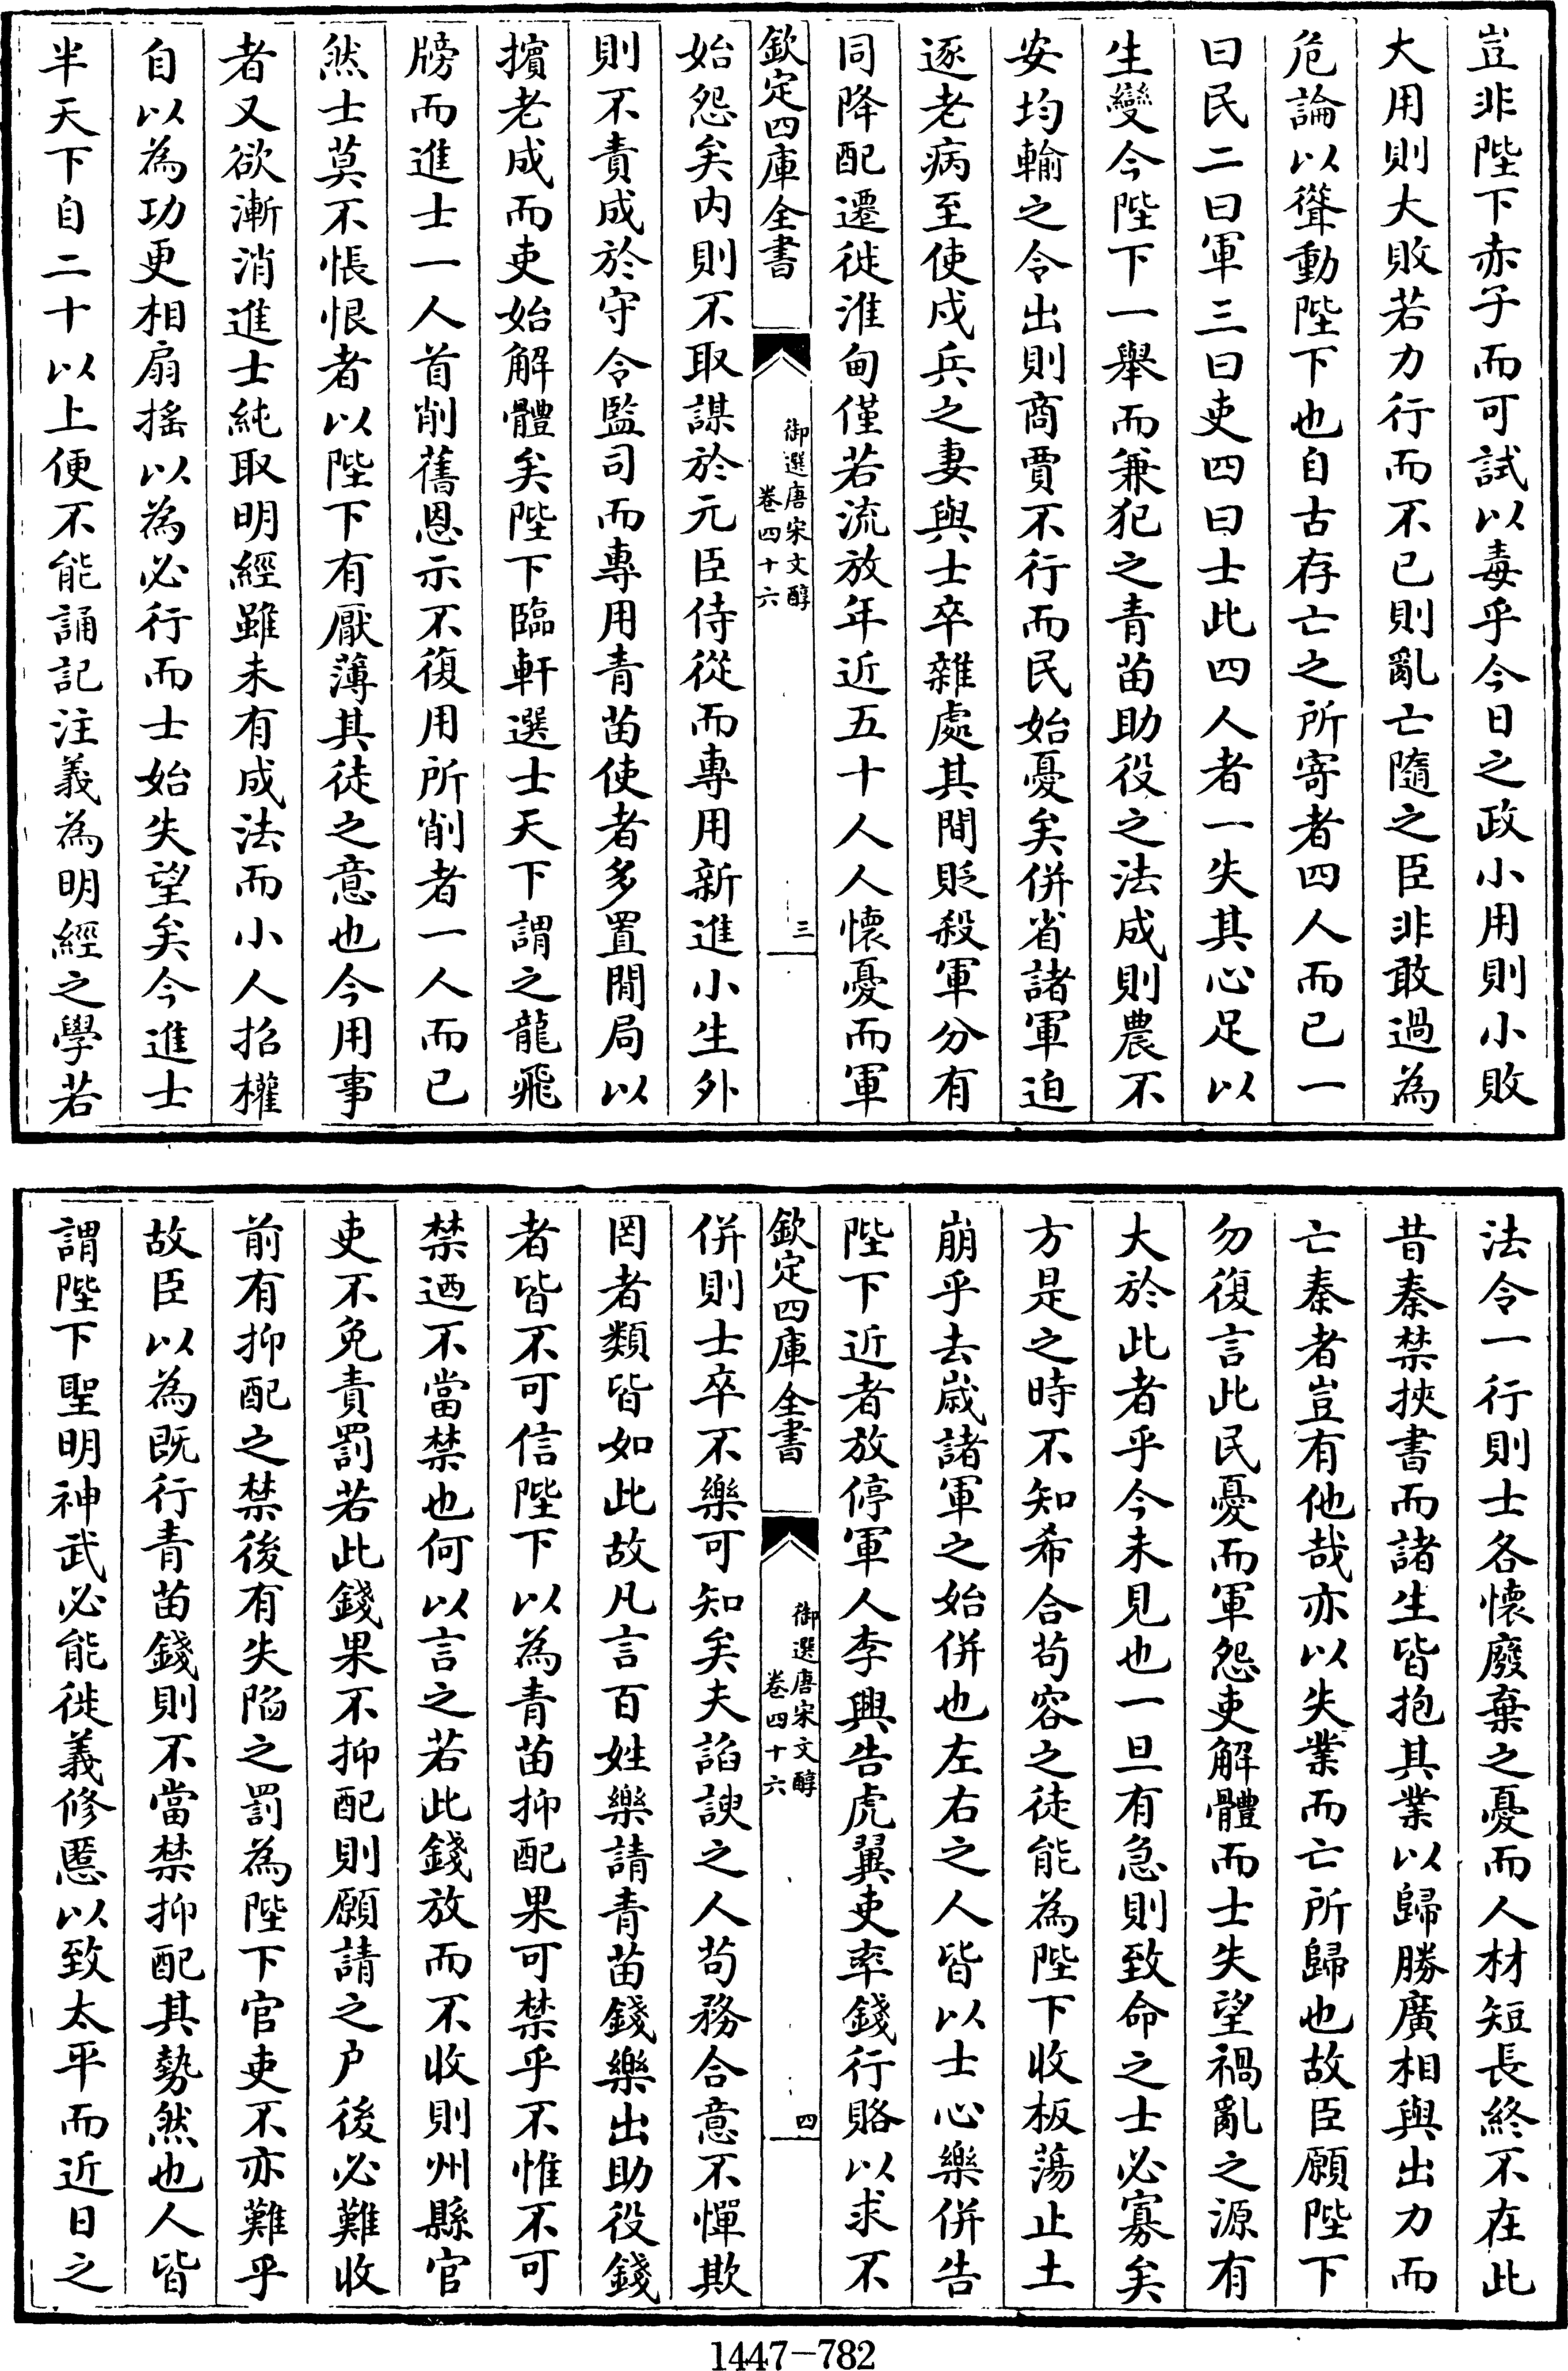 豈非陛下赤子而可試以毒乎今日之政小用則小敗
大用則大敗若力行而不已則亂亡隨之臣非敢過為
危論以聳動陛下也自古存亡之所寄者四人而已一
曰民二曰軍三曰吏四曰士此四人者一失其心足以
生變今陛下一舉而兼犯之青苗助役之法成則農不
安均輸之令出則商賈不行而民始憂矣併省諸軍迫
逐老病至使戍兵之妻與士卒雜處其間貶殺軍分有
同降配遷徙淮甸僅若流放年近五十人人懷憂而軍
欽定四庫全書
御選唐宋文醇
卷四十六
三
始怨矣内則不取謀於元臣侍從而專用新進小生外
則不責成於守令監司而專用青苗使者多置閒局以
擯老成而吏始解體矣陛下臨軒選士天下謂之龍飛
牓而進士一人首削舊恩示不復用所削者一人而已
然士莫不悵恨者以陛下有厭薄其徒之意也今用事
者又欲漸消進士純取明經雖未有成法而小人招權
自以為功更相扇搖以為必行而士始失望矣今進士
半天下自二十以上便不能誦記注義為明經之學若
法令一行則士各懷廢棄之憂而人材短長終不在此
昔秦禁挾書而諸生皆抱其業以歸勝廣相與出力而
亡秦者豈有他哉亦以失業而亡所歸也故臣願陛下
勿復言此民憂而軍怨吏解體而士失望禍亂之源有
大於此者乎今未見也一旦有急則致命之士必寡矣
方是之時不知希合苟容之徒能為陛下收板蕩止土
崩乎去歲諸軍之始併也左右之人皆以士心樂併告
陛下近者放停軍人李興告虎翼吏率錢行賂以求不
欽定四庫全書
御選唐宋文醇
卷四十六
四
併則士卒不樂可知矣夫諂諛之人苟務合意不憚欺
罔者類皆如此故凡言百姓樂請青苗錢樂出助役錢
者皆不可信陛下以為青苗抑配果可禁乎不惟不可
禁迺不當禁也何以言之若此錢放而不收則州縣官
吏不免責罰若此錢果不抑配則願請之户後必難收
前有抑配之禁後有失陷之罰為陛下官吏不亦難乎
故臣以為既行青苗錢則不當禁抑配其勢然也人皆
謂陛下聖明神武必能徙義修慝以致太平而近日之
1447-782